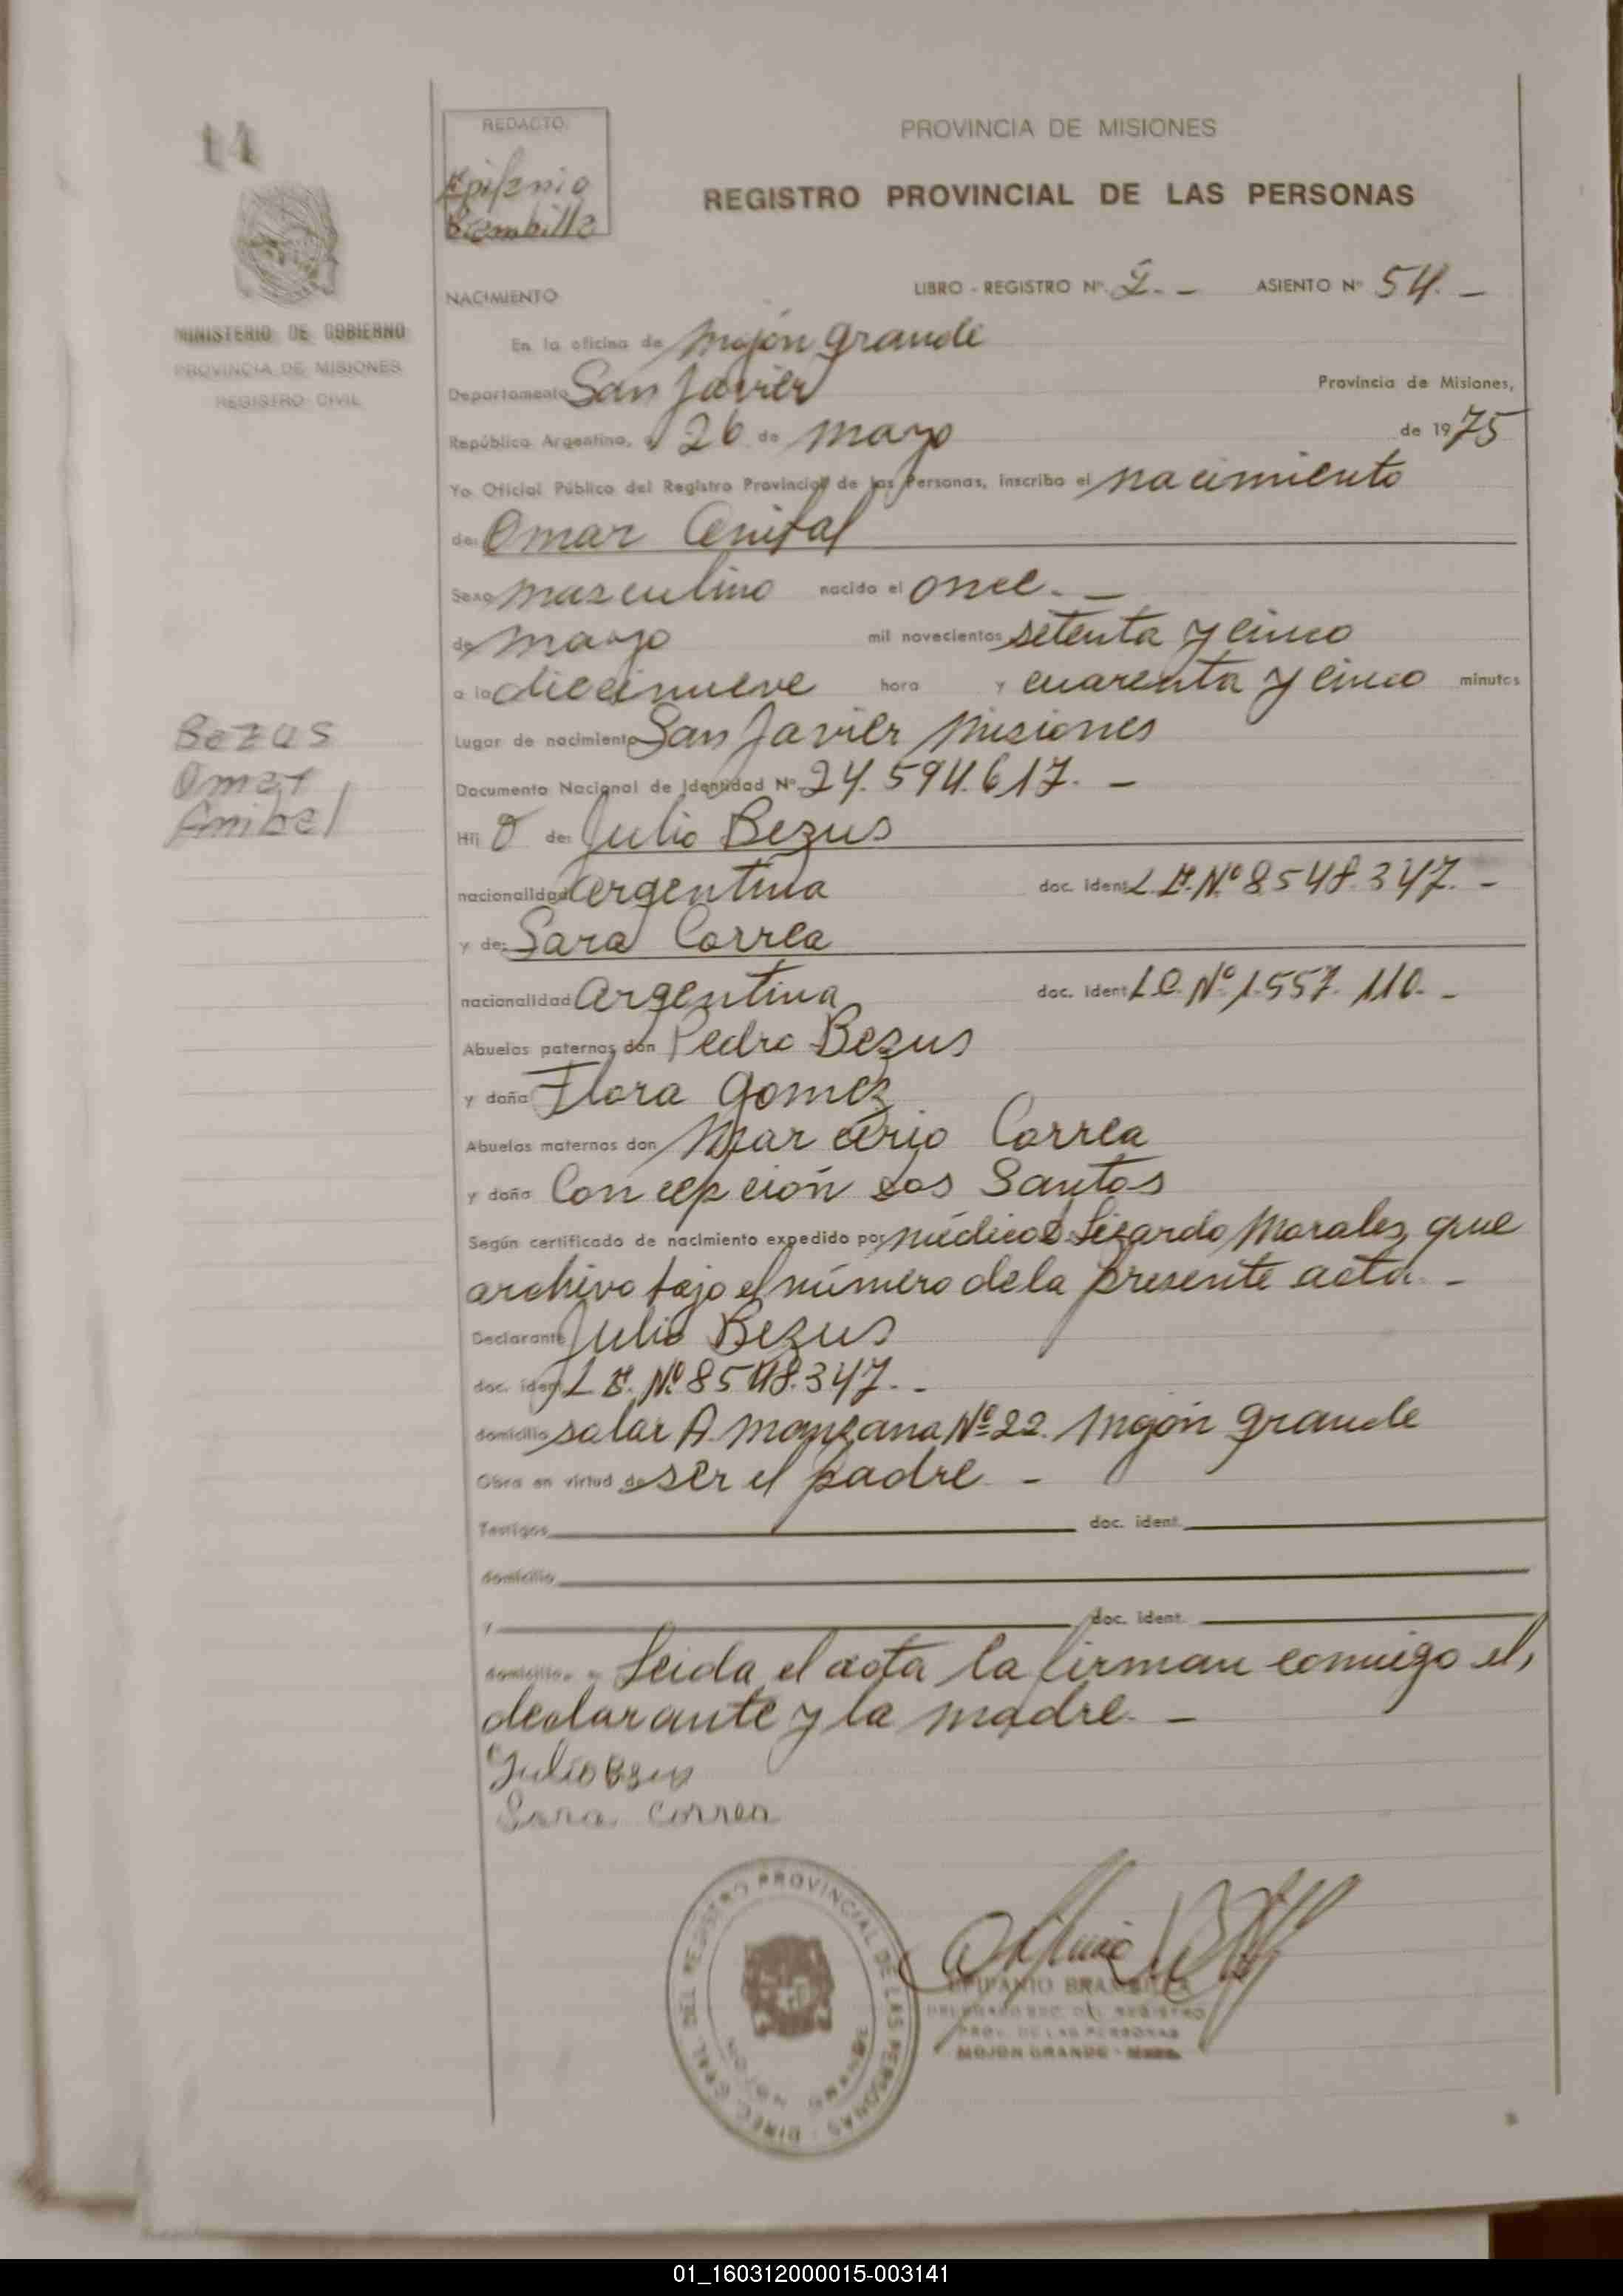 14
REDACTO:
Epifanio
Brambilla
PROVINCIA DE MISIONES
REGISTRO PROVINCIAL DE LAS PERSONAS
MINISTERIO DE GOBIERNO
PROVINCIA DE MISIONES
REGISTRO CIVIL
NACIMIENTO
LIBRO - REGISTRO Nº 2. - ASIENTO Nº 54. -
En la oficina de Mojón Grande
Departamento San Javier Provincia de Misiones,
República Argentina, a 26 de mayo de 1975
Yo Oficial Público del Registro Provincial de las Personas, inscribo el nacimiento
de: Omar Anibal
Sexo masculino nacido el once. -
de mayo mil novecientos setenta y cinco
a la diecinueve hora y cuarenta y cinco minutos
Lugar de nacimiento San Javier Misiones
Documento Nacional de Identidad Nº 24.594.617. -
Bezus
Omar
Anibal
Hij o de: Julio Bezus
nacionalidad argentina doc. ident. L.E. Nº 8548.347. -
y de: Sara Correa
nacionalidad argentina doc. ident. L.C. Nº 1.557.110. -
Abuelos paternos don Pedro Bezus
y doña Flora Gomez
Abuelos maternos don Marcerio Correa
y doña Concepción Dos Santos
Según certificado de nacimiento expedido por médico Lizardo Morales, que
archivo bajo el número de la presente acta. -
Declarante Julio Bezus
doc. ident. L E. Nº 8548.347. -
domicilio solar A. manzana Nº 22. Mojón Grande
Obra en virtud de ser el padre. -
Testigos doc. ident.
domicilio
y doc. ident.
domicilio - Leida el acta la firman conmigo el,
declarante y la madre. -
Julio Bezus
Sara Correa
DIREC. GRAL. DEL REGISTRO PROVINCIAL DE LAS PERSONAS
MOJON GRANDE
EPIFANIO BRAMBILLA
DELEGADO ESC. DEL REGISTRO
PROV. DE LAS PERSONAS
MOJON GRANDE - Mnes.
01_160312000015-003141